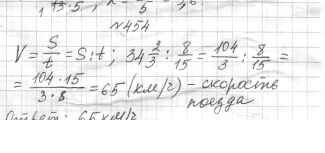 1 13·5 5
№454
V = S/t = S:t; 34 2/3 : 8/15 = 104/3 : 8/15 =
= 104·15/3·8 = 65 (км/ч) – скорость
поезда
Ответ: 65 км/ч